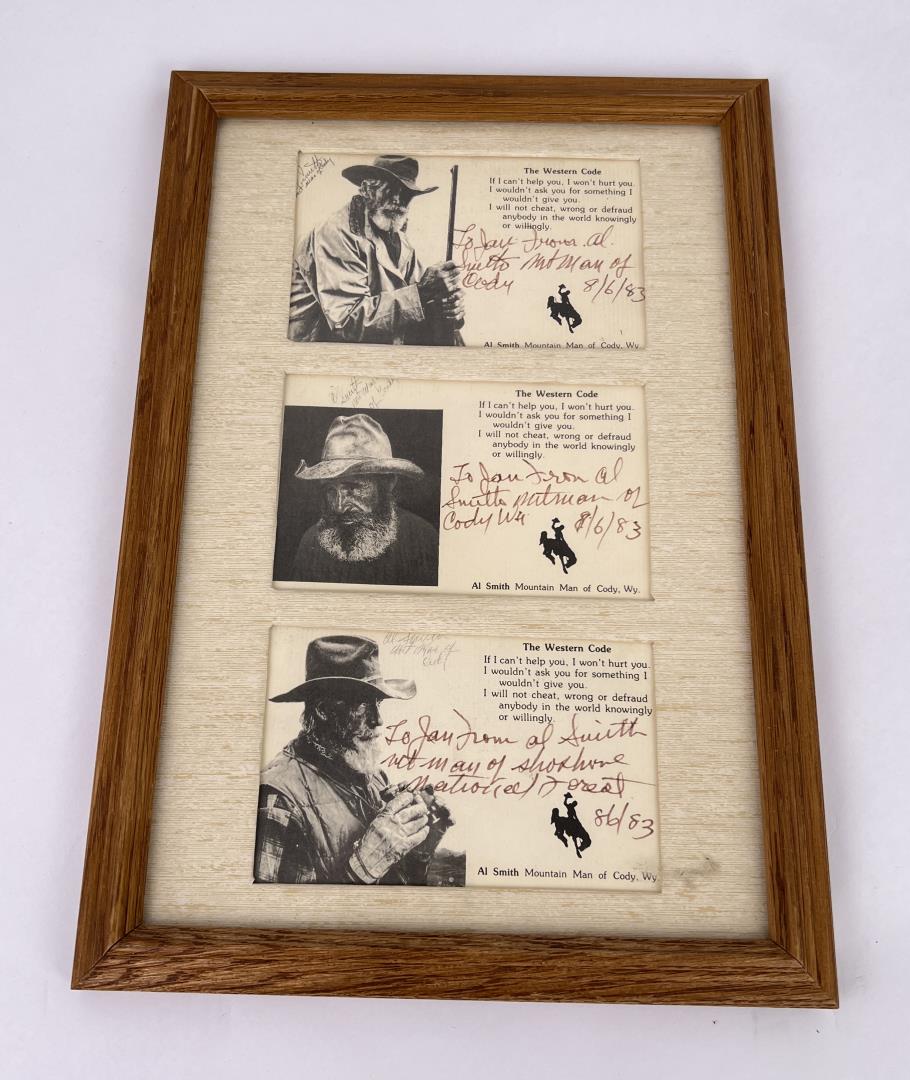 Al Smith
Mt Man of
Cody
The Western Code
If I can't help you, I won't hurt you.
I wouldn't ask you for something I
wouldn't give you.
I will not cheat, wrong or defraud
anybody in the world knowingly
or willingly.
To Jan From Al
Smith Mt Man of
Cody 8/6/83
Al Smith Mountain Man of Cody, Wy.
Al Smith
Mt Man
of Cody
The Western Code
If I can't help you, I won't hurt you.
I wouldn't ask you for something I
wouldn't give you.
I will not cheat, wrong or defraud
anybody in the world knowingly
or willingly.
To Jan From Al
Smith Mt man of
Cody Wy 8/6/83
Al Smith Mountain Man of Cody, Wy.
Al Smith
Mt Man of
Cody
The Western Code
If I can't help you, I won't hurt you.
I wouldn't ask you for something I
wouldn't give you.
I will not cheat, wrong or defraud
anybody in the world knowingly
or willingly.
To Jan From Al Smith
Mt man of Shoshone
National Forest
86/83
Al Smith Mountain Man of Cody, Wy